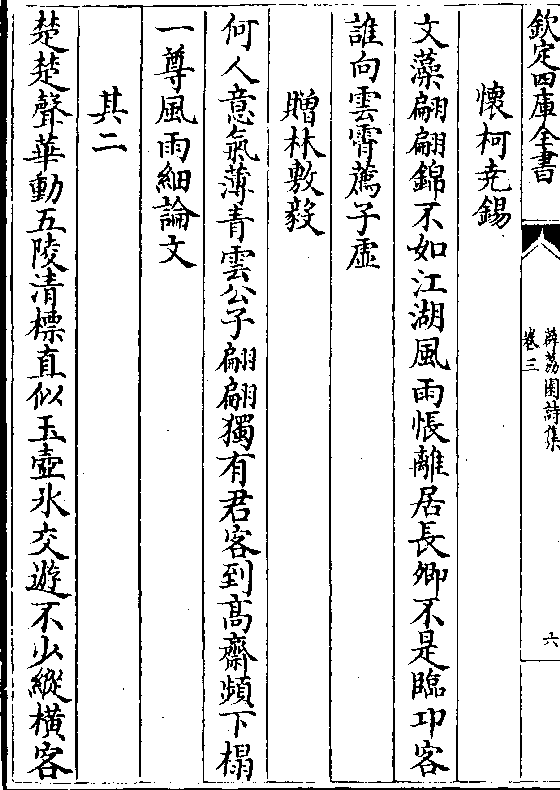 欽定四庫全書
薜荔園詩集
卷三
六
懷柯尭錫
文藻翩翩錦不如江湖風雨悵離居長卿不是臨邛客
誰向雲霄薦子虛
贈林敷毅
何人意氣薄青雲公子翩翩獨有君客到高齋頻下榻
一尊風雨細論文
其二
楚楚聲華動五陵清標直似玉壺氷交遊不少縱橫客